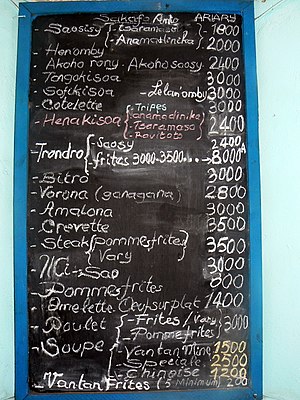 Sakafo Anio ARIARY
- Saosisy - tsaramaso 1800
- Anamadinika 2000
- Hen'omby
- Akoho rony - Akoho saosy 2400
- Tongokisoa 3000
- Sofikisoa - Lelan'omby 3000
- Cotelette - Tripes 3000
- Henakisoa - anamadinika
- Tsaramaso 2400
- Ravitoto
- Trondro - Saosy 2400
- frites 3000-3500... 8000
- Bitro 3000
- Vorona (ganagana) 2800
- Amalona 3000
- Crevette 3500
- Steak - pommes frites 3500
- Vary
- Mi-Sao 3000
- Pommes frites 800
- Omelette Oeuf sur plat 1400
- Poulet - Frites / Vary 3000
- Pomme frites
- Soupe - Van tan Mine 1500
- Speciale 2500
- Chinoise 1200
- Vantan Frites (5 Minimum) 200